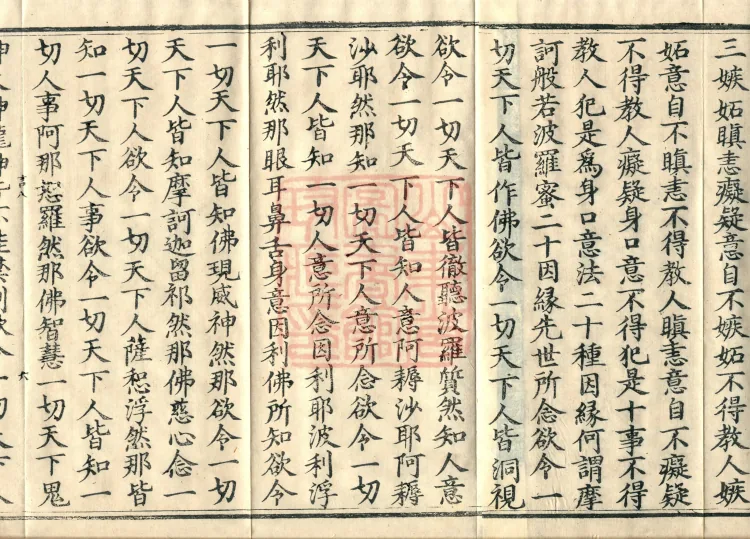 三嫉妬瞋恚癡疑意自不嫉妬不得教人嫉
妬意自不瞋恚不得教人瞋恚意自不癡疑
不得教人癡疑身口意不得犯是十事不得
教人犯是爲身口意法二十種因縁何謂摩
訶般若波羅蜜二十因縁先世所念欲令一
切天下人皆作佛欲令一切天下人皆洞視
欲令一切天下人皆徹聽波羅質然知人意
欲令一切天下人皆知人意阿耨沙耶阿耨
沙耶然那知一切天下人意所念欲令一切
天下人皆知一切人意所念因利耶波利浮
利耶然那眼耳鼻舌身意因利佛所知欲令
一切天下人皆知佛現威神然那欲令一切
天下人皆知摩訶迦留祁然那佛慈心念一
切天下人欲令一切天下人薩惒浮然那皆
知一切天下人事欲令一切天下人皆知一
切人事阿那惒羅然那佛智慧一切天下鬼